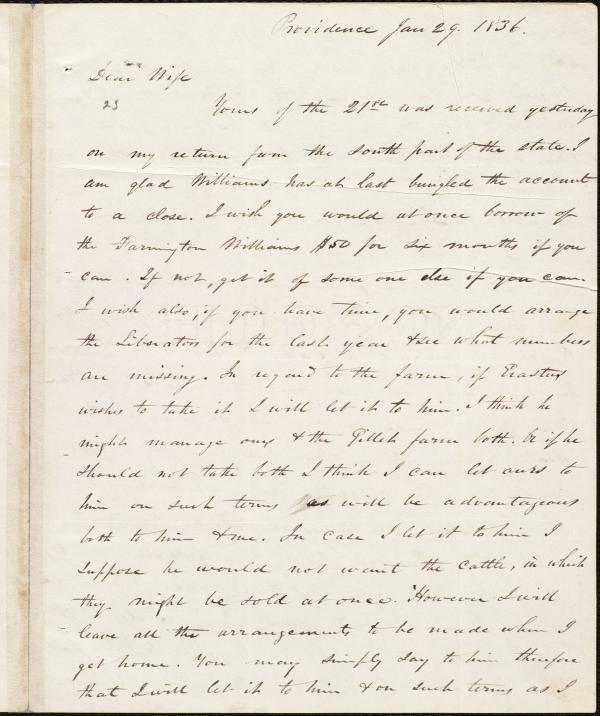 Providence Jan 29. 1836.
Dear Wife
23
Yours of the 21st was received yesterday
on my return from the south part of the state. I
am glad Williams has at last bungled the account
to a close. I wish you would at once borrow of
the Farmington Williams $50 for six months if you
can. If not, get it of some one else if you can.
I wish also, if you have time, you would arrange
the Liberators for the last year & see what numbers
are missing. In regard to the farm, if Erastus
wishes to take it I will let it to him. I think he
might manage ours & the Gillet farm both. Or if he
should not take both I think I can let ours to
him on such terms as will be advantageous
both to him & me. In case I let it to him I
suppose he would not want the cattle, in which
they might be sold at once. However I will
leave all the arrangements to be made when I
get home. You may simply say to him therefore
that I will let it to him & on such terms as I